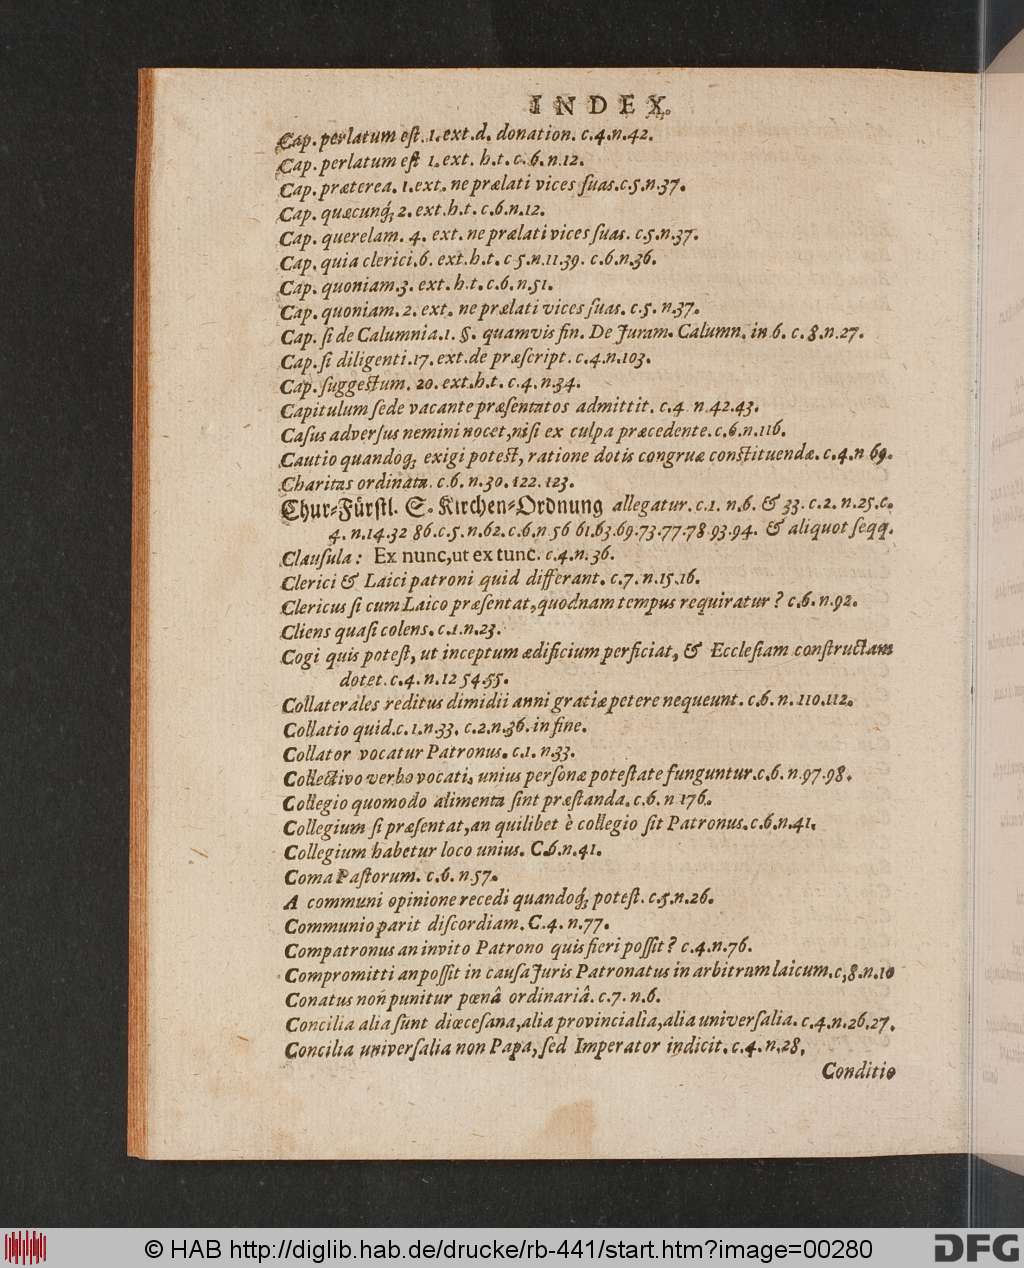 INDEX.
Cap. perlatum eſt. 1. ext. d. donation. c.4.n.42.
Cap. perlatum eſt 1. ext. h.t. c. 6. n.12.
Cap. præterea. 1. ext. ne prælati vices ſuas. c.5.n.37.
Cap. quæcunq́; 2. ext. h.t. c.6.n.12.
Cap. querelam. 4. ext. ne prælati vices ſuas. c.5.n.37.
Cap. quia clerici.6. ext. h.t. c 5.n.11.39. c.6.n.36.
Cap. quoniam.3. ext. h.t. c.6.n.51.
Cap. quoniam. 2. ext. ne prælati vices ſuas. c.5. n.37.
Cap. ſi de Calumnia.1. §. quamvis fin. De Juram. Calumn. in 6. c. 8.n.27.
Cap. ſi diligenti.17. ext.de præſcript. c.4.n.103.
Cap. ſuggeſtum. 20. ext.h.t. c.4. n.34.
Capitulum ſede vacante præſentatos admittit. c.4. n.42.43.
Caſus adverſus nemini nocet, niſi ex culpa præcedente. c.6.n.116.
Cautio quandoq; exigi poteſt, ratione dotis congruæ conſtituendæ. c.4.n 69.
Charitas ordinata. c.6. n.30. 122. 123.
Chur-Fürſtl. S. Kirchen-Ordnung allegatur. c.1. n.6. & 33. c.2. n.25.c.
4. n.14.32 86.c.5.n.62.c.6.n 56 61.63.69.73.77.78 93.94. & aliquot ſeqq.
Clauſula: Ex nunc, ut ex tunc. c.4.n.36.
Clerici & Laici patroni quid differant. c.7. n.15.16.
Clericus ſi cum Laico præſentat, quodnam tempus requiratur? c.6.n.92.
Cliens quaſi colens. c.1.n.23.
Cogi quis poteſt, ut inceptum ædificium perficiat, & Eccleſiam conſtructam
dotet. c.4. n.12 54.55.
Collaterales reditus dimidii anni gratiæ petere nequeunt. c.6. n.110.112.
Collatio quid.c.1.n.33. c.2.n.36. in fine.
Collator vocatur Patronus. c.1. n.33.
Collectivo verbo vocati, unius perſonæ poteſtate funguntur. c.6. n.97.98.
Collegio quomodo alimenta ſint præſtanda. c.6. n 176.
Collegium ſi præſentat, an quilibet è collegio ſit Patronus. c.6.n.41.
Collegium habetur loco unius. C.6.n.41.
Coma Paſtorum. c.6. n.57.
A communi opinione recedi quandoq́; poteſt. c.5.n.26.
Communio parit diſcordiam. C.4. n.77.
Compatronus an invito Patrono quis fieri poſſit? c.4.n.76.
Compromitti an poſſit in cauſa Juris Patronatus in arbitrum laicum. c,8.n.10
Conatus non punitur pœnâ ordinariâ. c.7. n.6.
Concilia alia ſunt diœceſana, alia provincialia, alia univerſalia. c.4.n.26,27.
Concilia univerſalia non Papa, ſed Imperator indicit. c.4. n.28,
Conditio
© HAB http://diglib.hab.de/drucke/rb-441/start.htm?image=00280
DFG